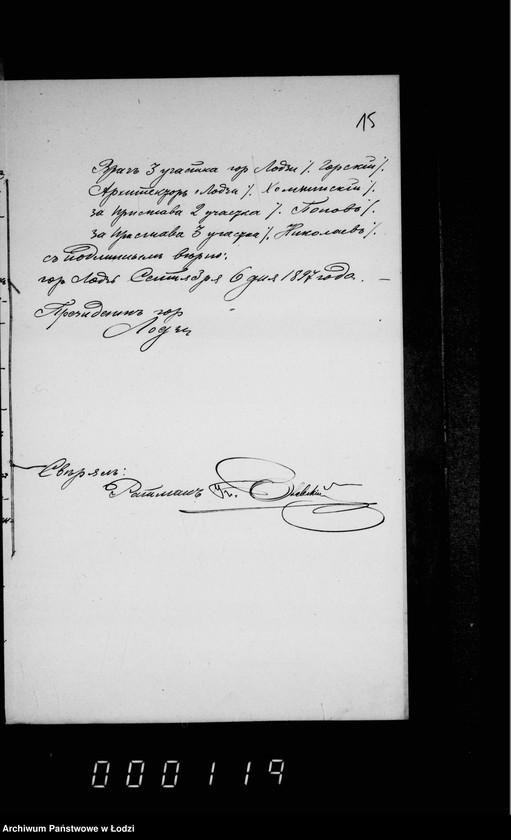 15
Врачъ 3 участка гор Лодзи /. Горскій /.
Архитекторъ г Лодзи /. Хелминскій /.
за Пристава 2 участка /. Поповъ /.
за Пристава 3 участка /. Николаевъ /.
съ подлиннымъ вѣрно:
гор Лодзь Сентября 6 дня 1897 года. —
Президентъ гор
Лодзи
Свѣрялъ:
Ратманъ
0000119
Archiwum Państwowe w Łodzi